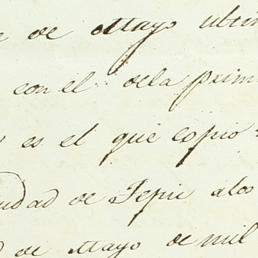 de Mayo
con el dela prim
es el que copio
udad de Tepic alos
de Mayo de mil